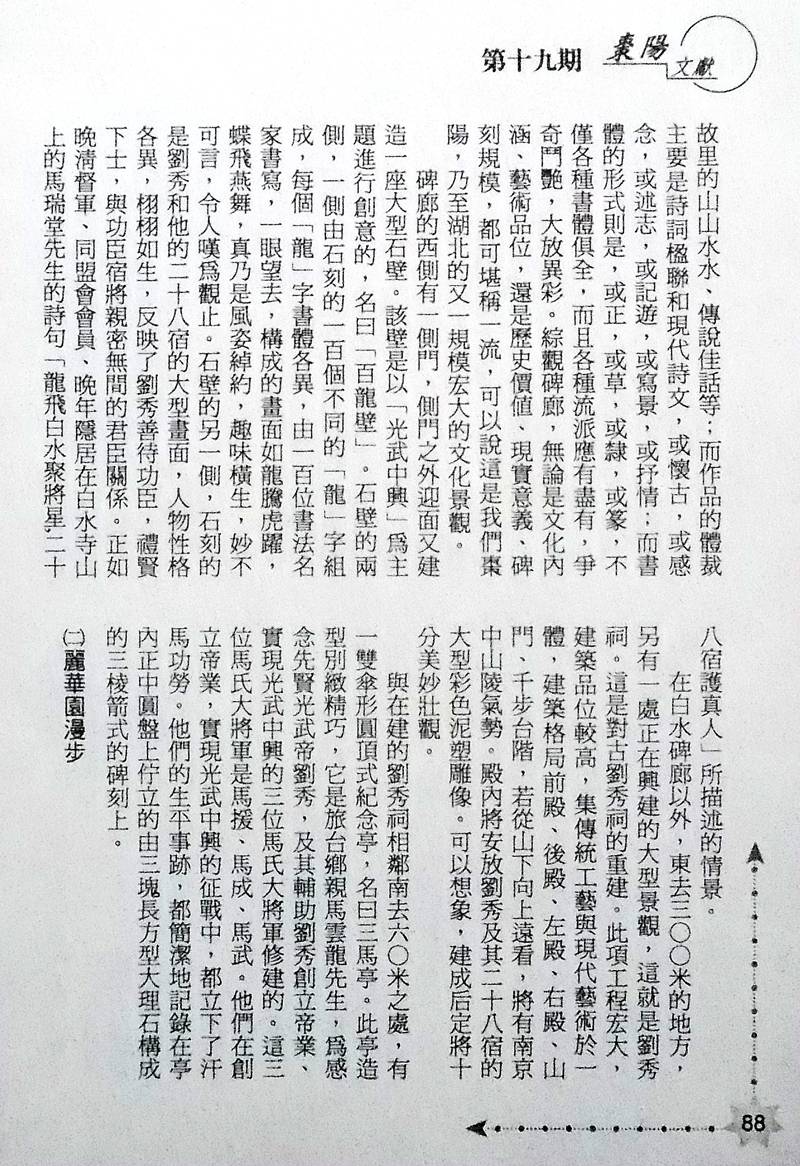 棗陽
文獻
第十九期
故里的山山水水、傳說佳話等；而作品的體裁
主要是詩詞楹聯和現代詩文，或懷古，或感
念，或述志，或記遊，或寫景，或抒情；而書
體的形式則是，或正，或草，或隸，或篆，不
僅各種書體俱全，而且各種流派應有盡有，爭
奇鬥艷，大放異彩。綜觀碑廊，無論是文化內
涵、藝術品位，還是歷史價值、現實意義、碑
刻規模，都可堪稱一流，可以說這是我們棗
陽，乃至湖北的又一規模宏大的文化景觀。
碑廊的西側有一側門，側門之外迎面又建
造一座大型石壁。該壁是以「光武中興」爲主
題進行創意的，名曰「百龍壁」。石壁的兩
側，一側由石刻的一百個不同的「龍」字組
成，每個「龍」字書體各異，由一百位書法名
家書寫，一眼望去，構成的畫面如龍騰虎躍，
蝶飛燕舞，真乃是風姿綽約，趣味橫生，妙不
可言，令人嘆爲觀止。石壁的另一側，石刻的
是劉秀和他的二十八宿的大型畫面，人物性格
各異，栩栩如生，反映了劉秀善待功臣，禮賢
下士，與功臣宿將親密無間的君臣關係。正如
晚清督軍、同盟會會員、晚年隱居在白水寺山
上的馬瑞堂先生的詩句「龍飛白水聚將星，二十
八宿護真人」所描述的情景。
在白水碑廊以外，東去三〇〇米的地方，
另有一處正在興建的大型景觀，這就是劉秀
祠。這是對古劉秀祠的重建。此項工程宏大，
建築品位較高，集傳統工藝與現代藝術於一
體，建築格局前殿、後殿、左殿、右殿、山
門、千步台階，若從山下向上遠看，將有南京
中山陵氣勢。殿內將安放劉秀及其二十八宿的
大型彩色泥塑雕像。可以想象，建成后定將十
分美妙壯觀。
與在建的劉秀祠相鄰南去六〇米之處，有
一雙傘形圓頂式紀念亭，名曰三馬亭。此亭造
型別緻精巧，它是旅台鄉親馬雲龍先生，爲感
念先賢光武帝劉秀，及其輔助劉秀創立帝業、
實現光武中興的三位馬氏大將軍修建的。這三
位馬氏大將軍是馬援、馬成、馬武。他們在創
立帝業，實現光武中興的征戰中，都立下了汗
馬功勞。他們的生平事跡，都簡潔地記錄在亭
內正中圓盤上佇立的由三塊長方型大理石構成
的三棱箭式的碑刻上。
㈡麗華園漫步
88